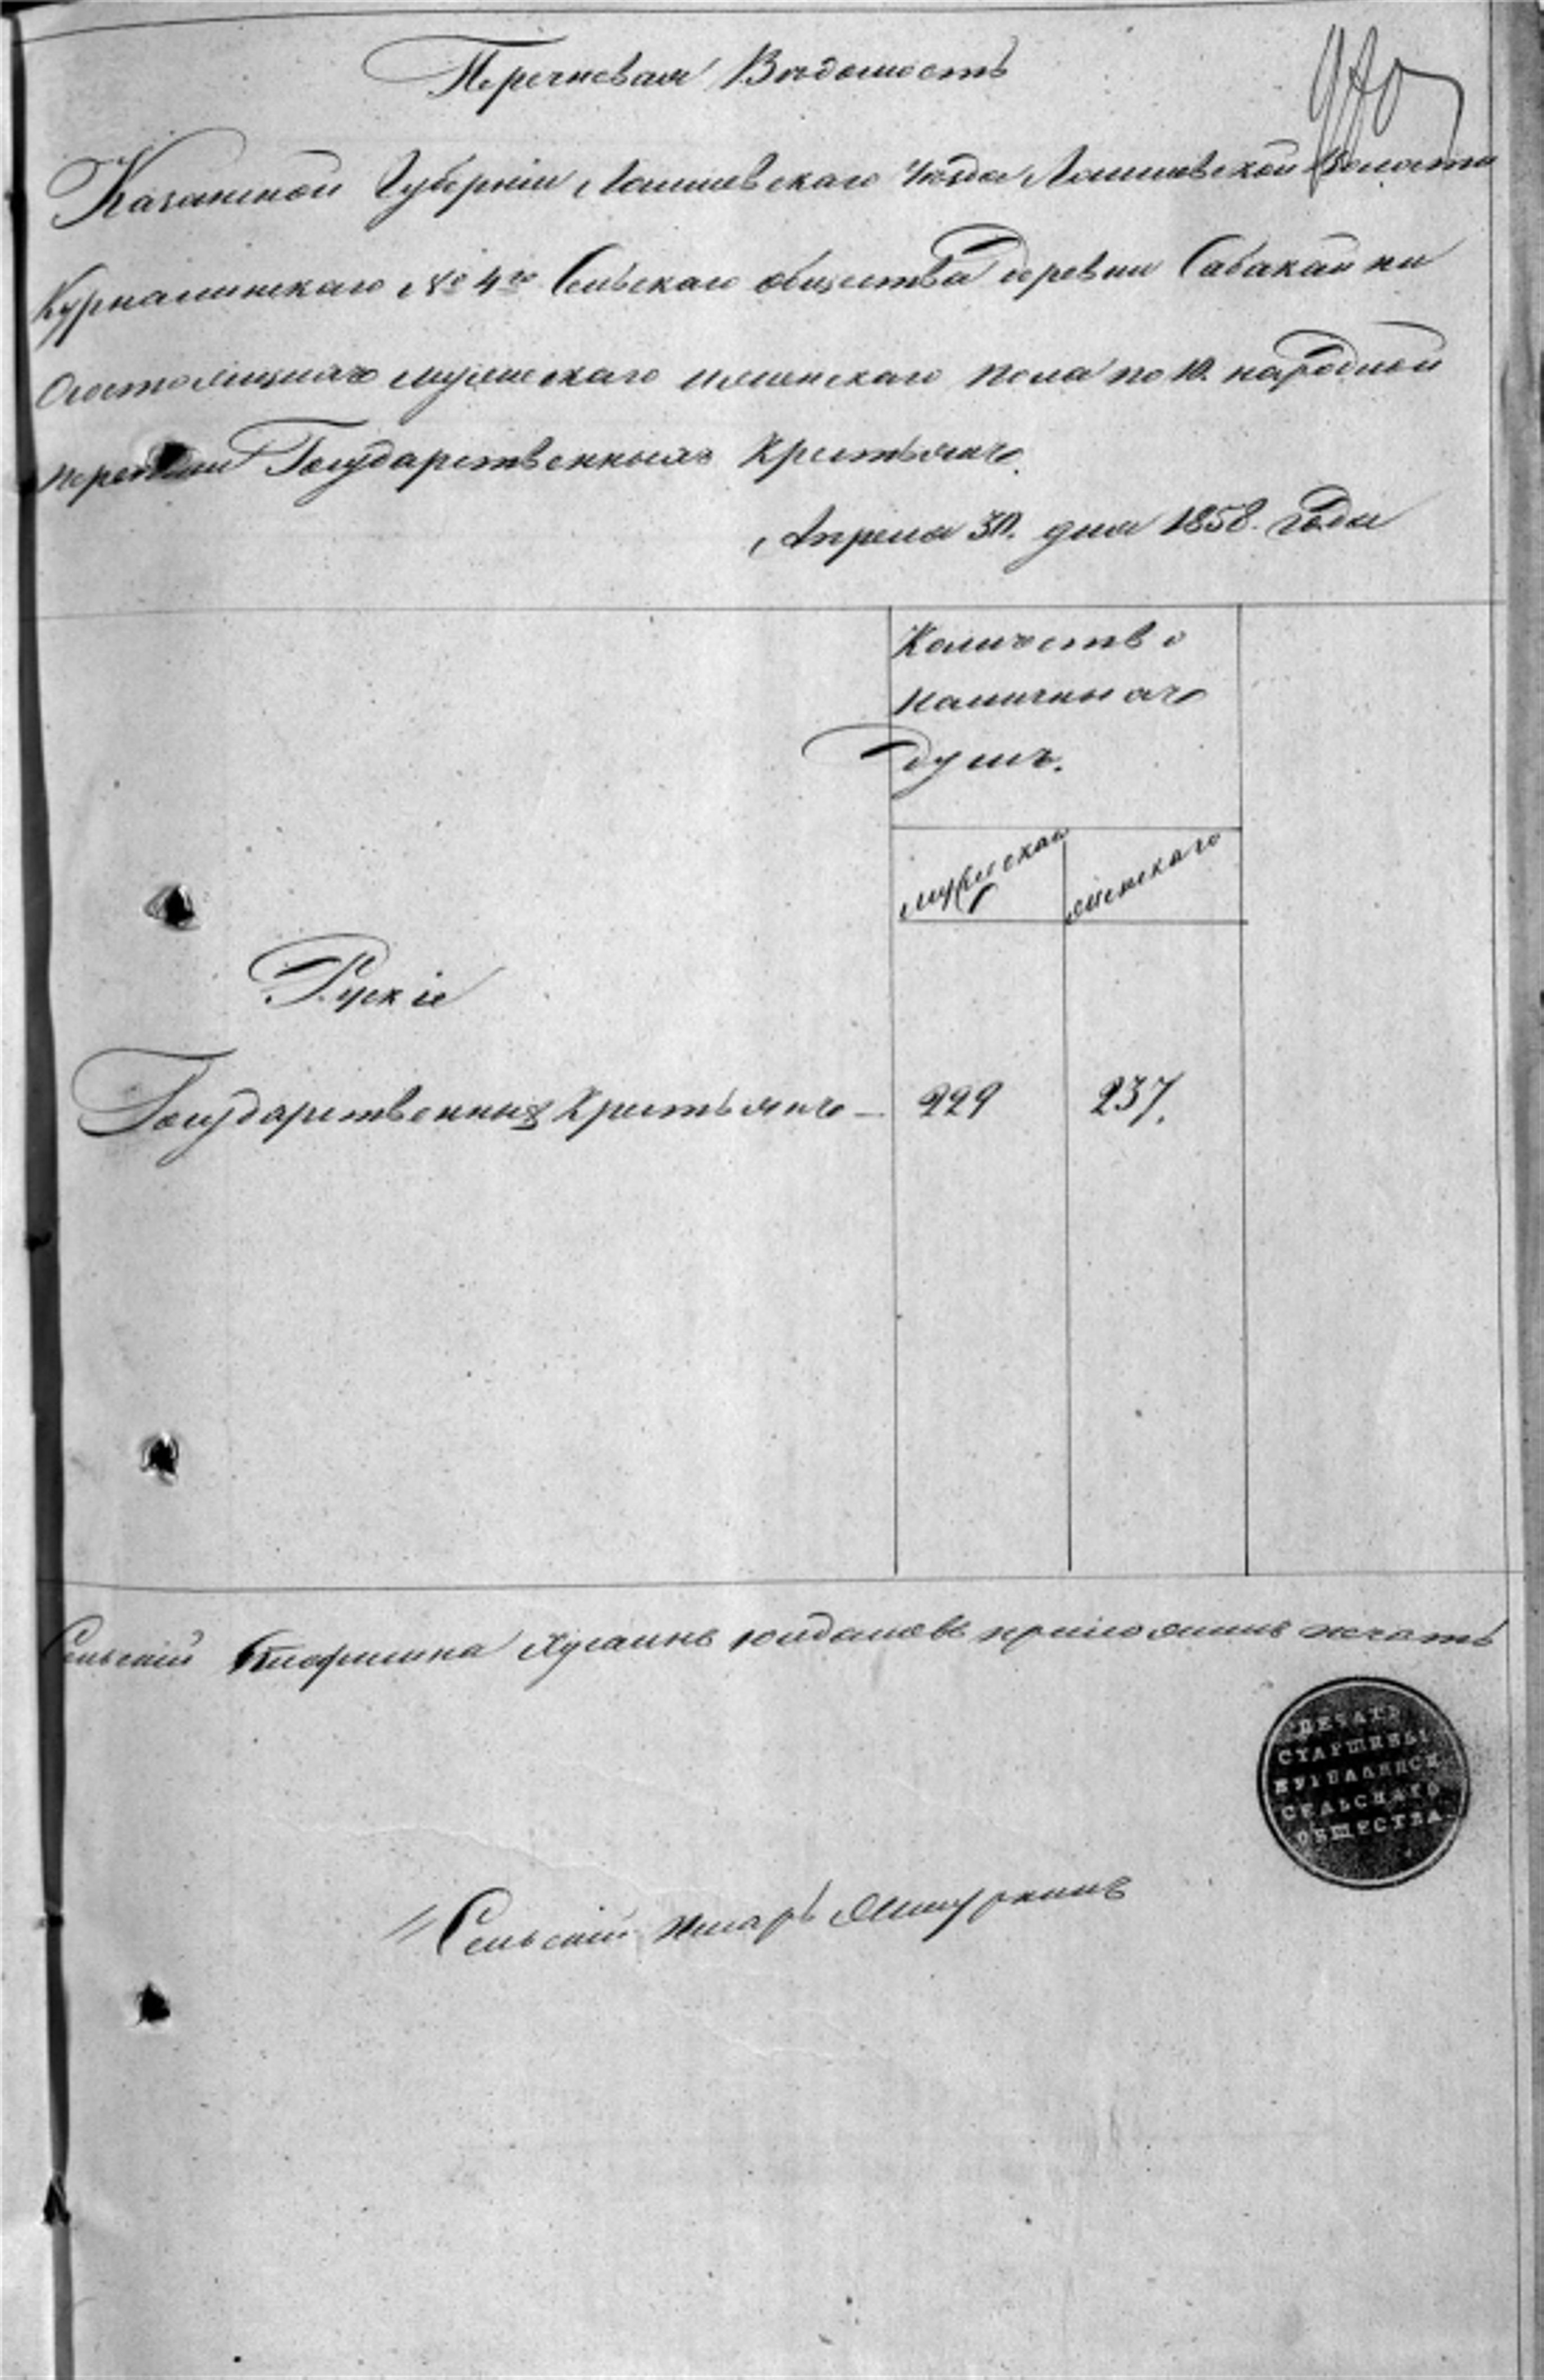 Перечневая Вѣдомость
Казанской Губерніи Лаишевскаго Уѣзда Лаишевской Волости
Курналинскаго № 4го Сельскаго общества Деревни Сабакайки
О состоящихъ мужескаго и женскаго пола по 10. народной
переписи Государственныхъ Крестьянъ
Апреля 30. дня 1858. года
Количество
наличныхъ
душъ.
мужскаго
женскаго
Рускіе
Государственныхъ Крестьянъ — 229 237.
Сельскій Юлдашевъ приложилъ печать
ПЕЧАТЬ
СТАРШИНЫ
КУРНАЛИНСК
СЕЛЬСКАГО
ОБЩЕСТВА
Сельскій писарь